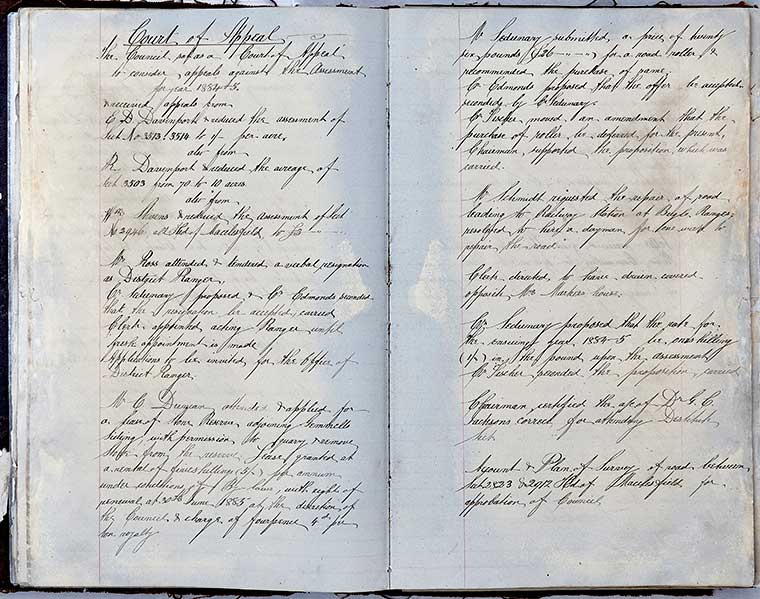 Court of Appeal
The Council sat as a Court of Appeal
to consider appeals against the Assessment
for year 1884+5.
& received appeals from
C D Davenport & reduced the assessment of
Sect No 3513 & 3514 to per acre,
also from
R. Davenport & reduced the acreage of
Sect 3503 from 70 to 10 acres
also from
Wm Stevens & reduced the Assessment of Sect
No 2946 Hd of Macclesfield to £3
Mr Ross attended & tendered a verbal resignation
as District Ranger,
Cr Sedunary proposed & Cr Edmonds seconded
that the resignation be accepted, carried
Clerk appointed acting Ranger until
fresh appointment is made
Applications to be invited for the Office of
District Ranger.
Mr C Duncan attended & applied for
a lease of Stone Reserve adjoining
with permission to quarry & remove
Stone from the reserve, Lease granted at
a rental of five shillings (5/-) per annum
under conditions of By laws, with right of
renewal at 30th June 1885 at the discretion of
the Council & charge of fourpence 4d per
ton royalty
Mr Sedunary submitted a price of twenty
six pounds (£26 - - -) for a road roller &
recommended the purchase of same,
Cr Edmonds proposed that the offer be accepted
seconded by Cr Sedunary.
Cr Fischer moved an amendment that the
purchase of roller be deferred for the present,
Chairman supported the proposition which was
carried.
Mr Schmidt requested the repair of road
leading to Railway Station at Bugle Ranges
resolved to hire a dayman for one week to
repair the road
Clerk directed to have drain covered
opposite Mrs Markers house.
Cr Sedunary proposed that the rate for
the ensuing year 1884-5 be one shilling
(1/-) in the pound upon the assessment
Cr Fischer seconded the proposition carried
Chairman certified the a/c of Dr G. C.
Jacksons correct for attending Destitute
Account & Plan of Survey of road between
Sect 2823 & 2912 Hd of Macclesfield for
approbation of Council